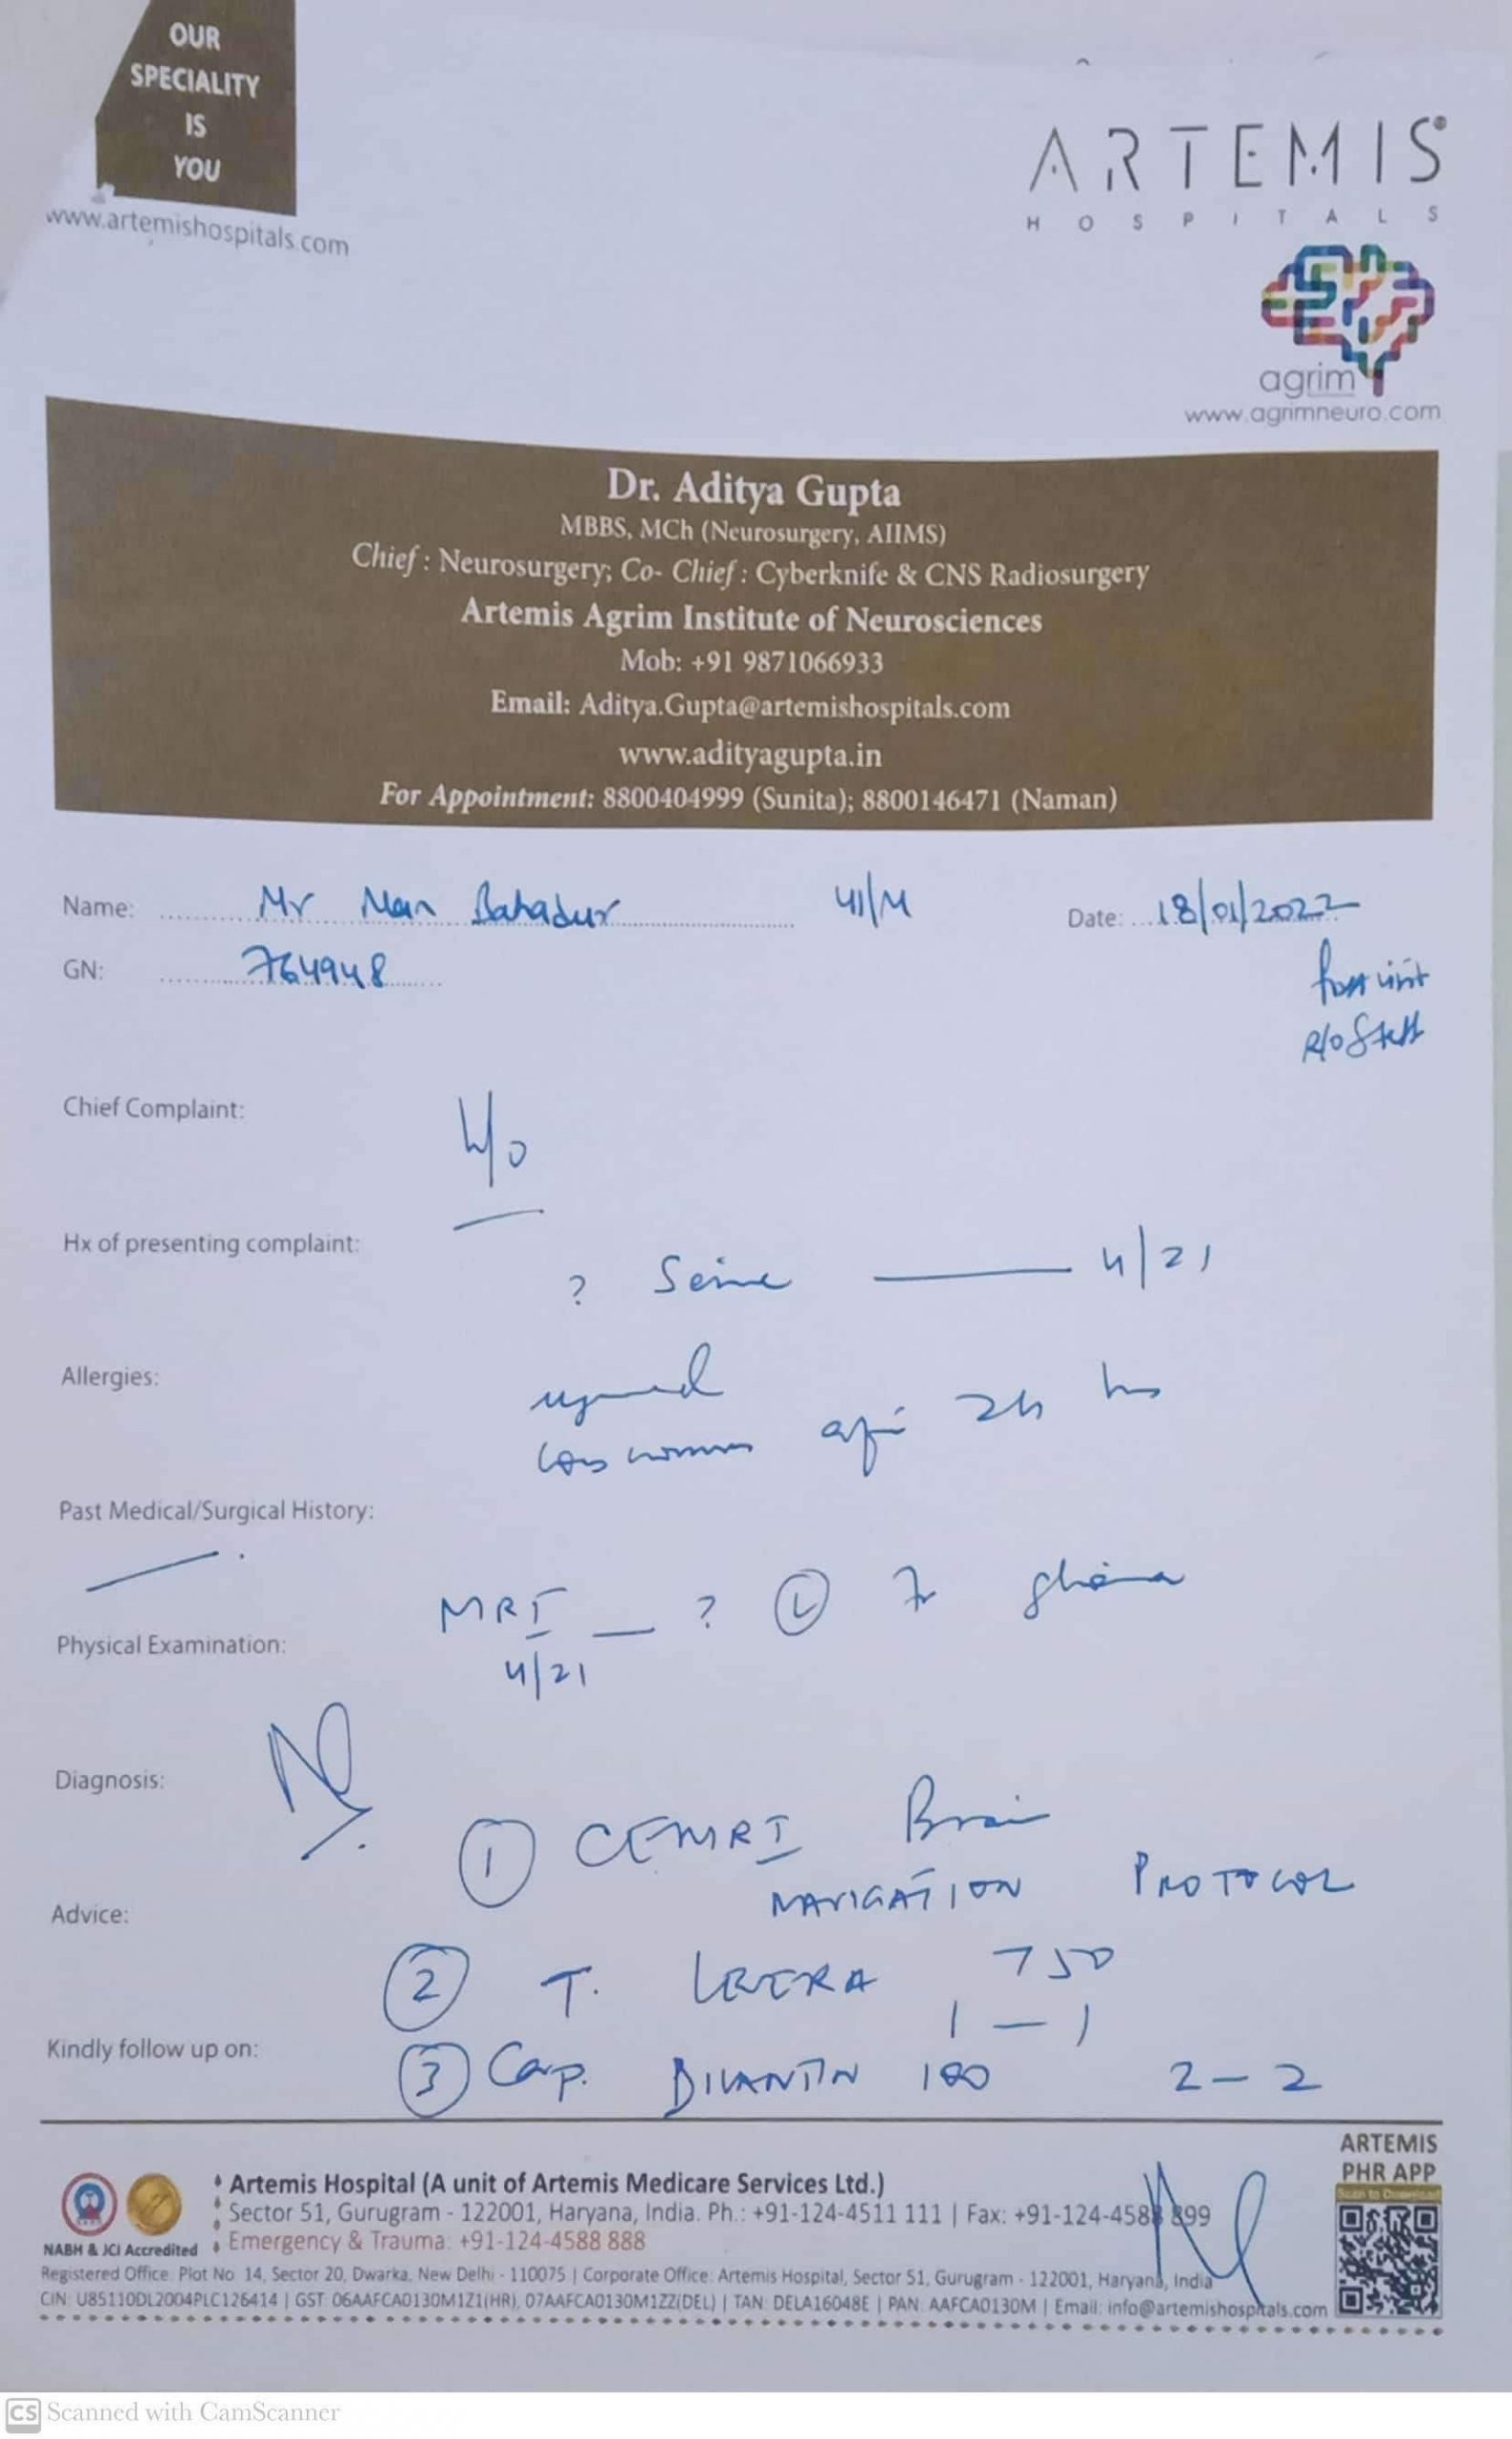 OUR
SPECIALITY
IS
YOU
www.artemishospitals.com
ARTEMIS
HOSPITALS
agrim
www.agrimneuro.com
Dr. Aditya Gupta
MBBS, MCh (Neurosurgery, AIIMS)
Chief : Neurosurgery; Co- Chief : Cyberknife & CNS Radiosurgery
Artemis Agrim Institute of Neurosciences
Mob: +91 9871066933
Email: Aditya.Gupta@artemishospitals.com
www.adityagupta.in
For Appointment: 8800404999 (Sunita); 8800146471 (Naman)
Name: Mr Man Bahadur 41/M Date: 18/01/2022
GN: 764948
R/o Staff
Chief Complaint:
H/o
Hx of presenting complaint:
? 4/21
Allergies:
24 hrs
Past Medical/Surgical History:
MRI - ? (L)
4/21
Physical Examination:
Diagnosis:
① CEMRI Brain
NAVIGATION PROTOCOL
Advice:
② T. LEVERA 750
1 - 1
Kindly follow up on:
③ Cap. DILANTIN 100 2 - 2
ARTEMIS
PHR APP
Scan to Download
NABH & JCI Accredited
Artemis Hospital (A unit of Artemis Medicare Services Ltd.)
Sector 51, Gurugram - 122001, Haryana, India. Ph.: +91-124-4511 111 | Fax: +91-124-4588 899
Emergency & Trauma: +91-124-4588 888
Registered Office: Plot No. 14, Sector 20, Dwarka, New Delhi - 110075 | Corporate Office: Artemis Hospital, Sector 51, Gurugram - 122001, Haryana, India
CIN: U85110DL2004PLC126414 | GST: 06AAFCA0130M1Z1(HR), 07AAFCA0130M1ZZ(DEL) | TAN: DELA16048E | PAN: AAFCA0130M | Email: info@artemishospitals.com
CS Scanned with CamScanner